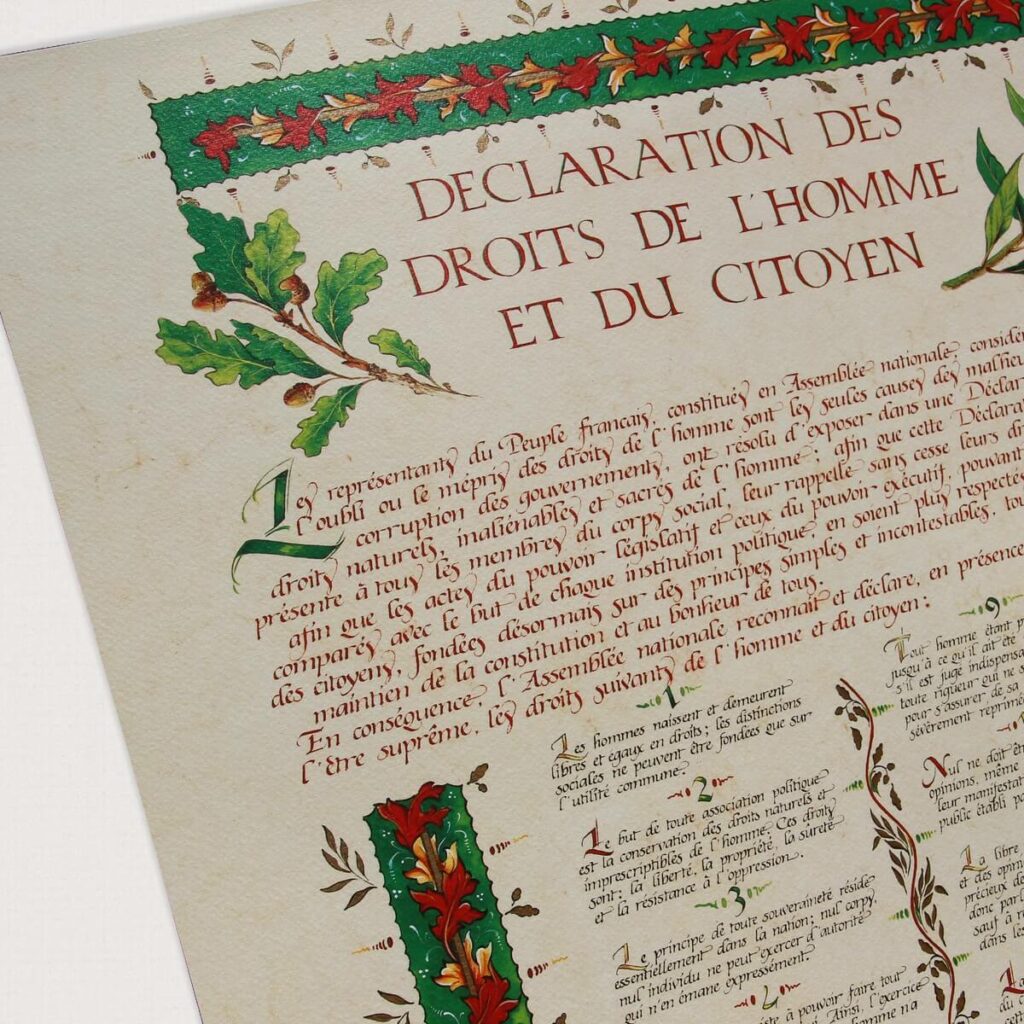 DECLARATION DES
DROITS DE L'HOMME
ET DU CITOYEN
Les représentants du Peuple francais, constitués en Assemblée nationale, considé
l'oubli ou le mépris des droits de l'homme sont les seules causes des malheu
corruption des gouvernements, ont résolu d'exposer dans une Déclara
droits naturels, inaliénables et sacrés de l'homme; afin que cette Déclarat
présente à tous les membres du corps social, leur rappelle sans cesse leurs dr
afin que les actes du pouvoir législatif et ceux du pouvoir exécutif, pouvant
comparés avec le but de chaque institution politique, en soient plus respectés
des citoyens, fondées désormais sur des principes simples et incontestables, tou
maintien de la constitution et au bonheur de tous.
En conséquence, l'Assemblée nationale reconnait et déclare, en présence
l'être suprême, les droits suivants de l'homme et du citoyen:
1
Les hommes naissent et demeurent
libres et égaux en droits; les distinctions
sociales ne peuvent être fondées que sur
l'utilité commune.
2
Le but de toute association politique
est la conservation des droits naturels et
imprescriptibles de l'homme. Ces droits
sont: la liberté, la propriété, la sûreté
et la résistance à l'oppression.
3
Le principe de toute souveraineté réside
essentiellement dans la nation; nul corps,
nul individu ne peut exercer d'autorité
qui n'en émane expressément.
4
iste à pouvoir faire tout
Ainsi, l'exercice
homme n'a
9
Tout homme étant p
jusqu'à ce qu'il ait été
s'il est jugé indispensa
toute rigueur qui ne s
pour s'assurer de sa
sévèrement réprimé
Nul ne doit êtr
opinions, même
leur manifestat
public établi pa
La libre
et des opini
précieux de
donc parl
sauf à r
dans les